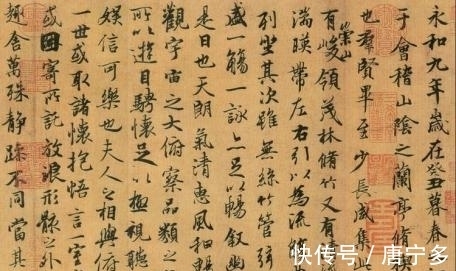 永和九年歲在癸丑暮春
于會稽山陰之蘭亭脩
也羣賢畢至少長咸集
崇山
有峻領茂林脩竹又有
湍暎帶左右引以為流
列坐其次雖無絲竹管弦
盛一觴一詠亦足以暢敘
是日也天朗氣清惠風和暢
觀宇宙之大俯察品類之
所以遊目騁懷足以極視聽
娛信可樂也夫人之相與俯
一世或取諸懷抱悟言一室
或因寄所託放浪形骸之外
趣舍萬殊靜躁不同當其
快传号 / 唐宁多